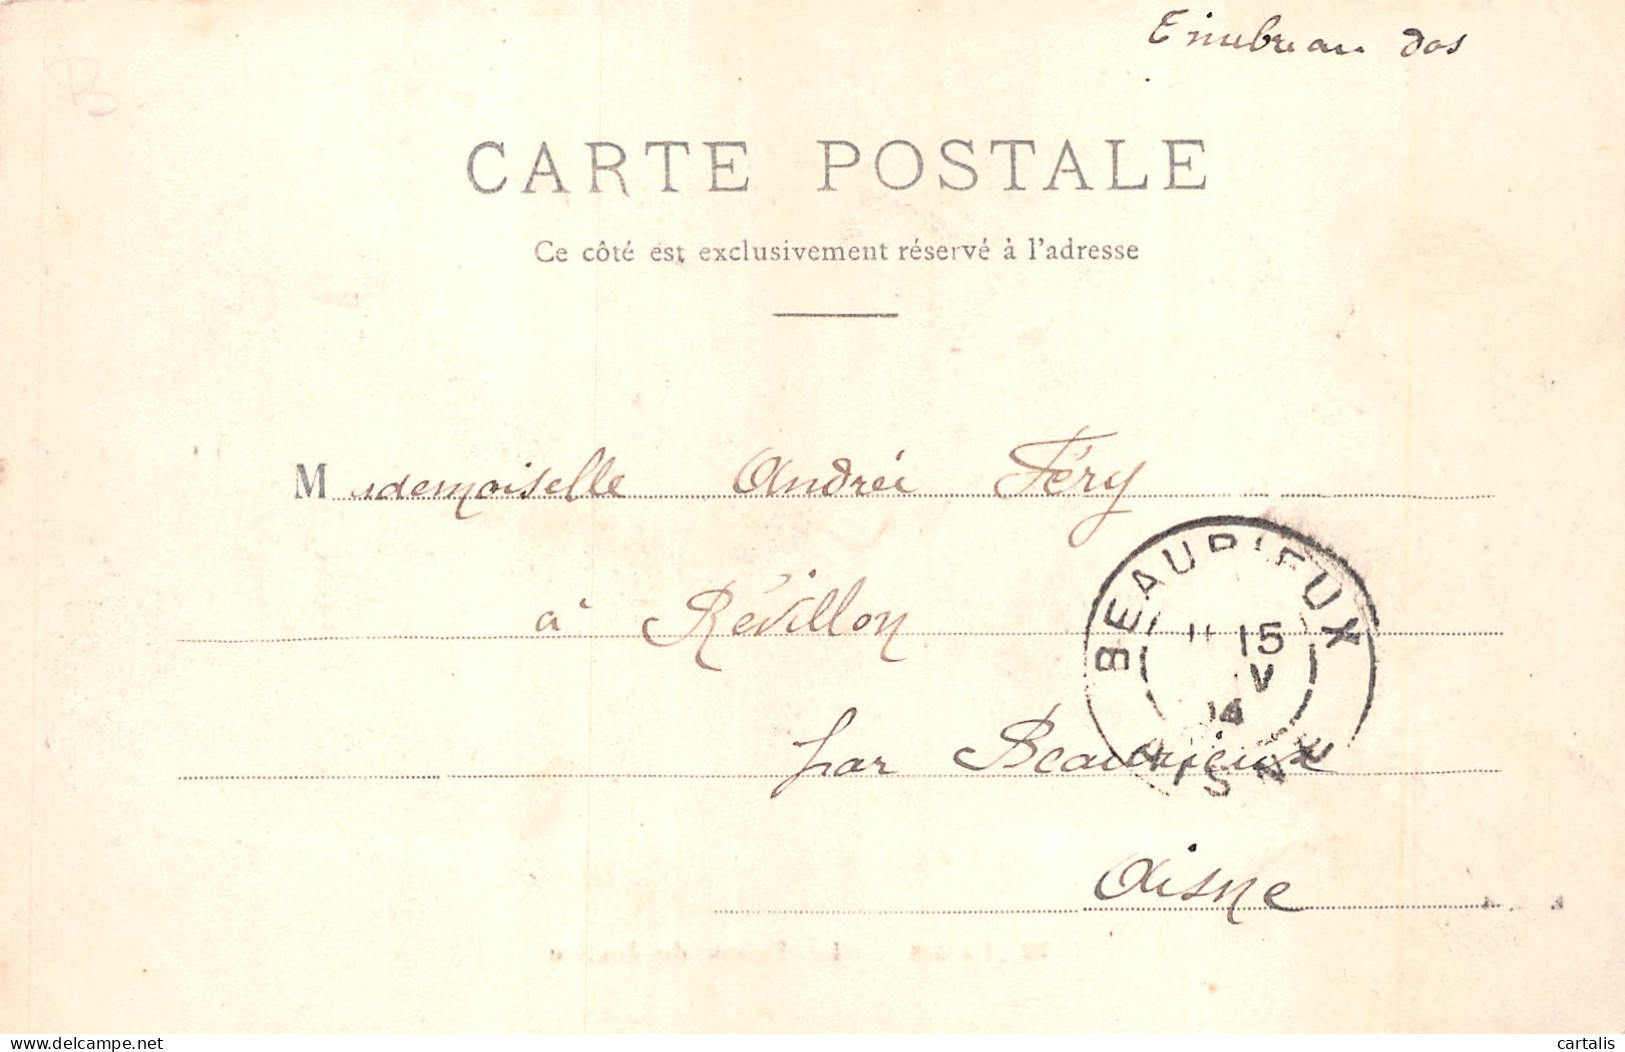 Timbre au dos
CARTE POSTALE
Ce côté est exclusivement réservé à l'adresse
Mademoiselle Andrée Féry
à Révillon
par Beaurieux
Aisne
BEAURIEUX
15
V
04
AISNE
delcampe.net
cartalis